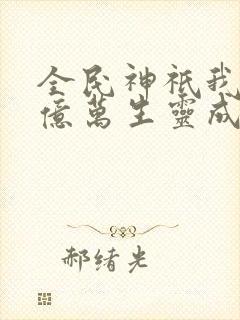 全民神祇我
億萬生靈成
郝绪光